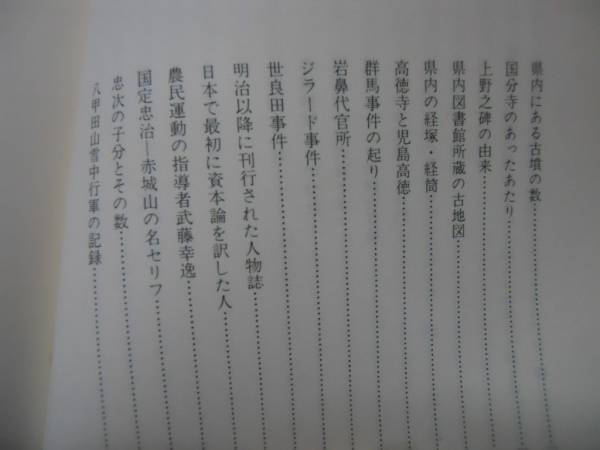 県内にある古墳の数
国分寺のあったあたり
上野之碑の由来
県内図書館所蔵の古地図
県内の経塚・経筒
高徳寺と児島高徳
群馬事件の起り
岩鼻代官所
ジラード事件
世良田事件
明治以降に刊行された人物誌
日本で最初に資本論を訳した人
農民運動の指導者武藤幸逸
国定忠治―赤城山の名セリフ
忠次の子分とその数
八甲田山雪中行軍の記録